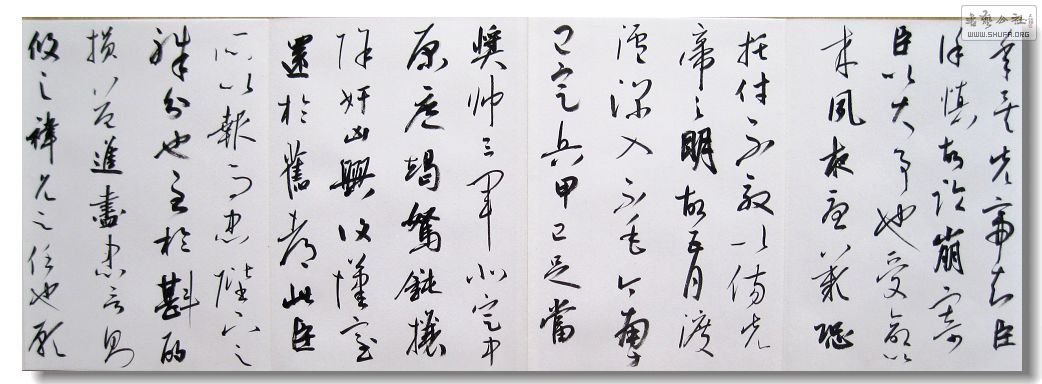 年矣先帝知臣
謹慎故臨崩寄
臣以大事也受命以
來夙夜憂歎恐
托付不效以傷先
帝之明故五月渡
瀘深入不毛今南方
已定兵甲已足當
奬帥三軍北定中
原庶竭駑鈍攘
除奸凶興復漢室
還於舊都此臣
所以報而忠陛下之
職分也至於斟酌
損益進盡忠言則
攸之禕允之任也願
书艺公社
WWW.SHUFA.ORG